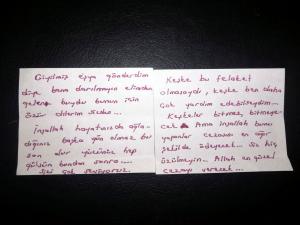 Giyilmiş eşya gönderdim
diye bana darılmayın elimden
gelen buydu bunun için
özür dilerim sizden...
İnşallah hayatınızda ağla-
dığınız başka gün olmaz bu
son olur yüzünüz hep
gülsün bundan sonra....
sizi çok seviyoruz.
Keşke bu felaket
olmasaydı, keşke ben daha
çok yardım edebilseydim...
Keşkeler bitmez, bitmeye-
cek Ama inşallah bunu
yapanlar cezasını en ağır
şekilde ödeyecek... siz hiç
üzülmeyin. Allah en güzel
cezayı verecek...